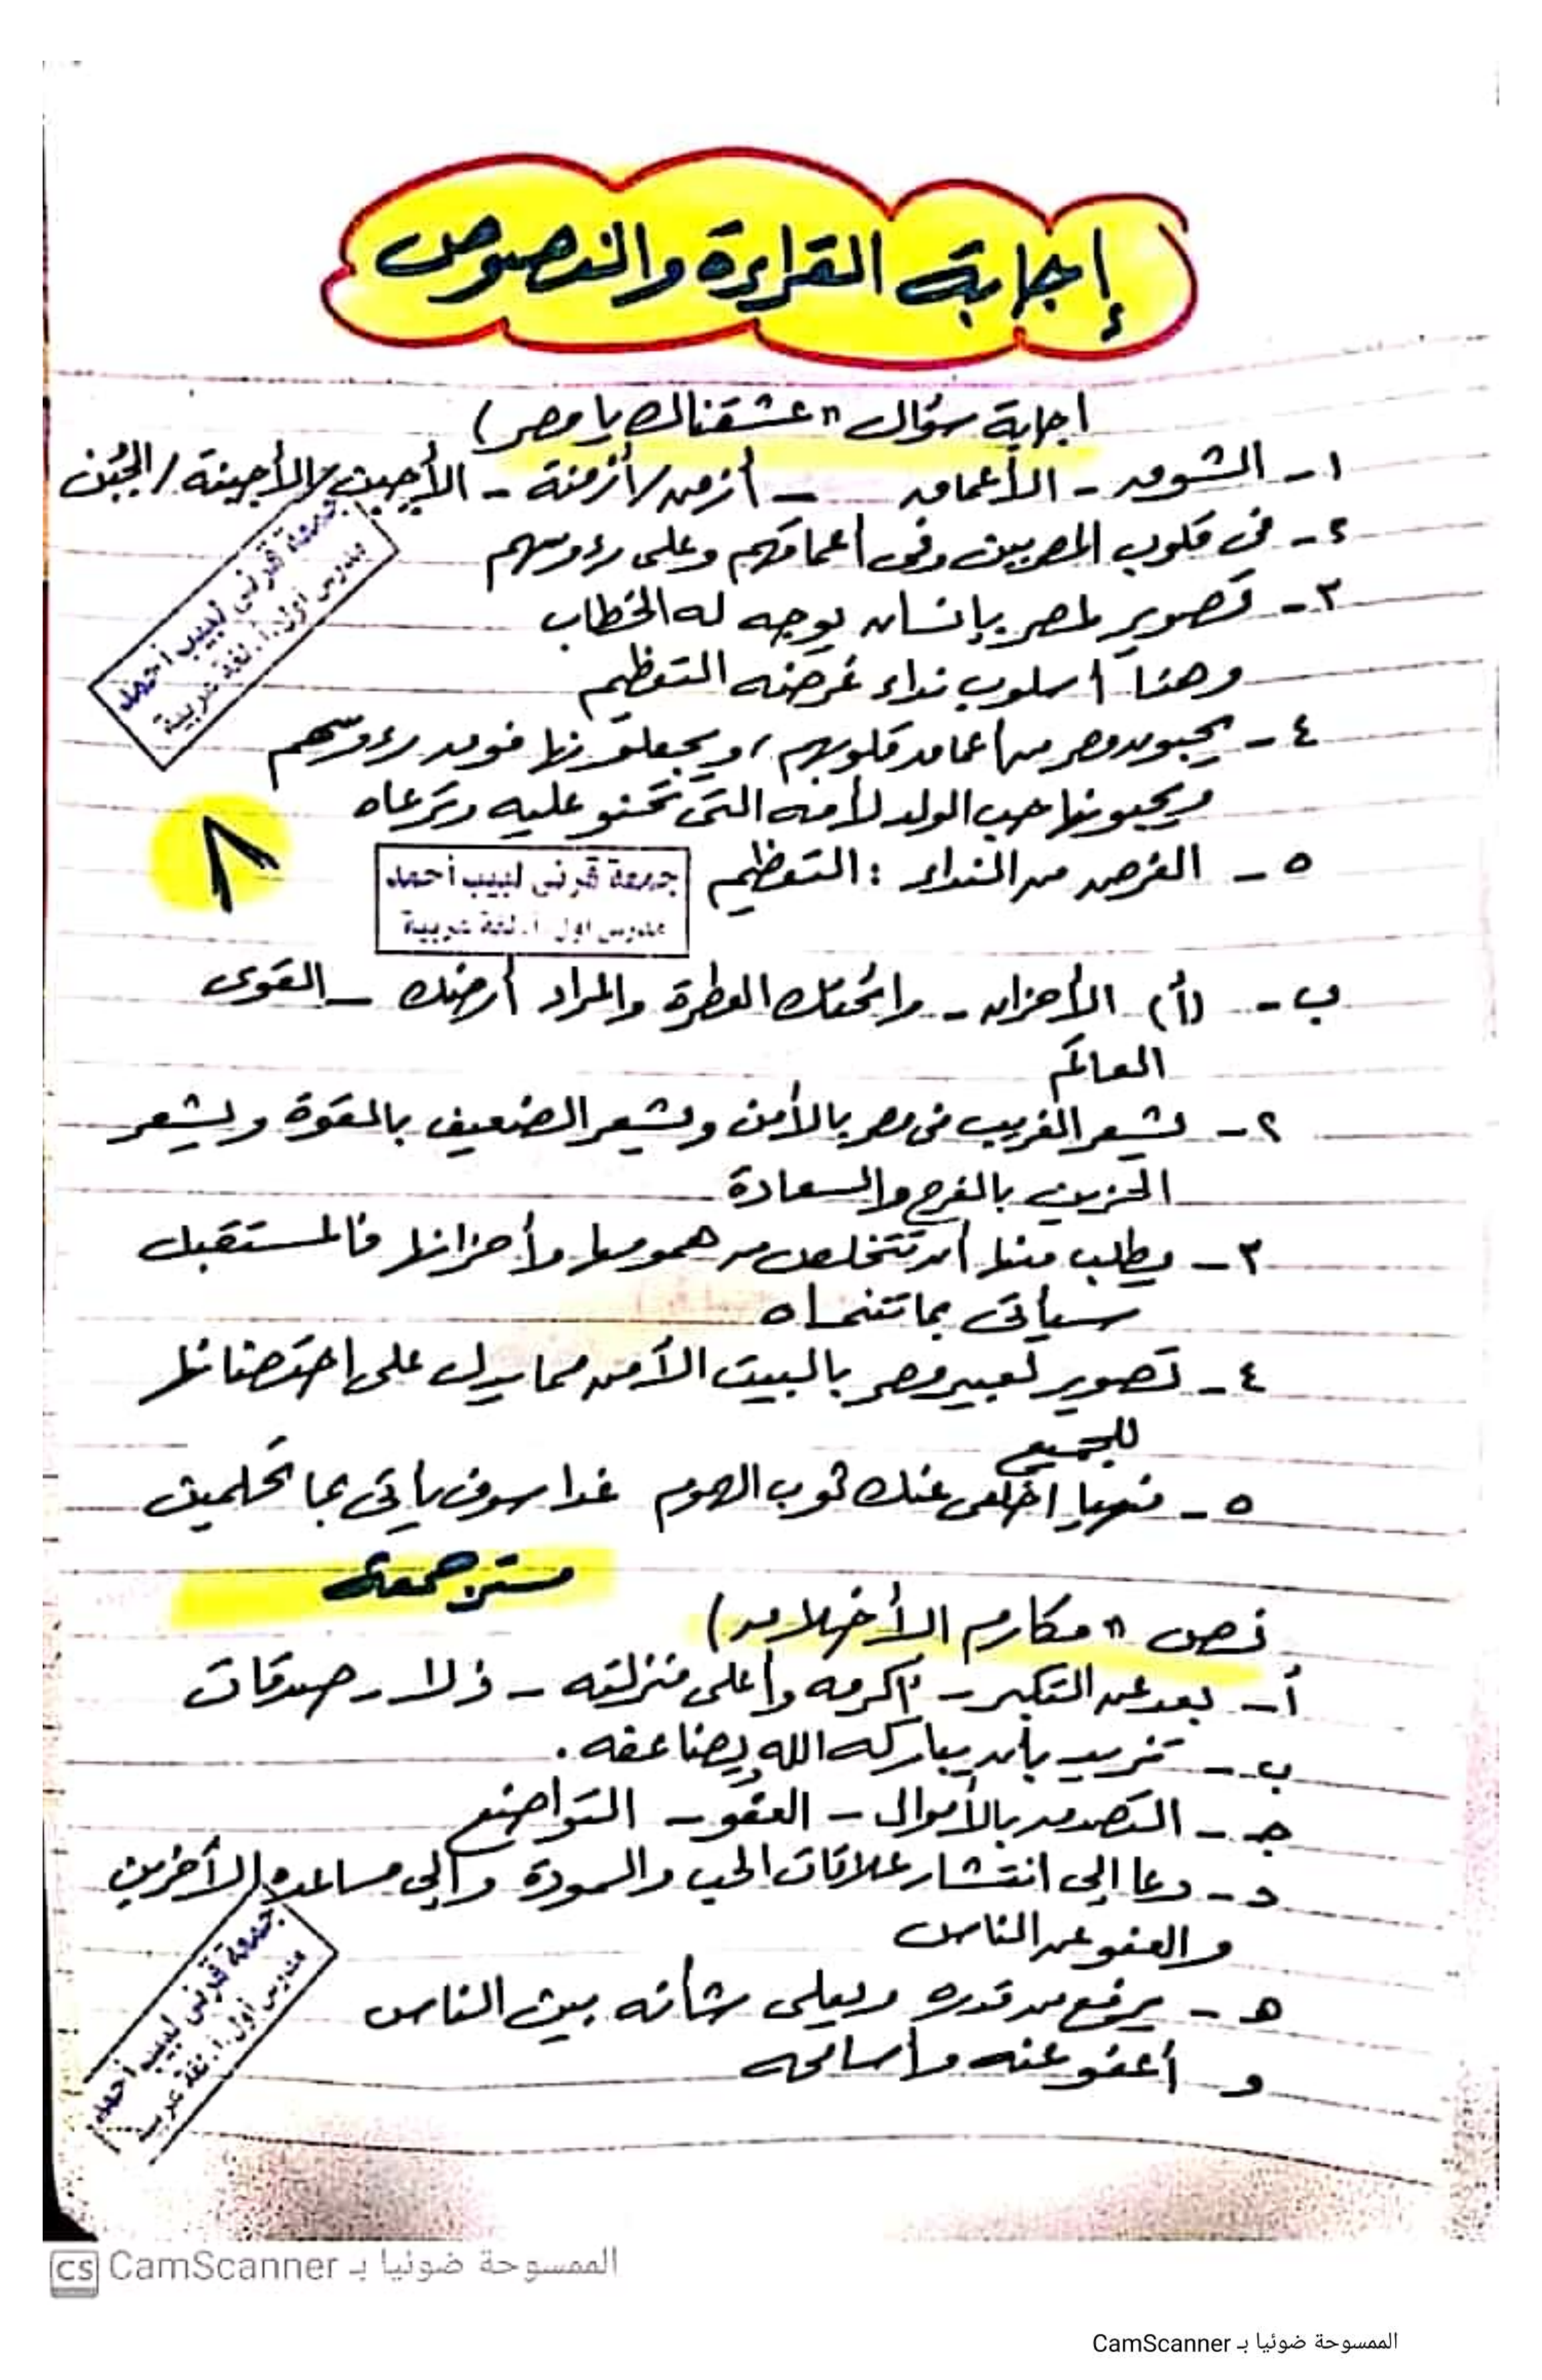 إجابة القراءة والنصوص
اجابة سؤال "عشقناك يا مصر)
١- الشوق - الأعماق - أزمن/أزمنة - الأجبن/الأجبنة/الجُبُن
٢- فى قلوب المصريين وفى أعماقهم وعلى رءوسهم
٣- تصوير لمصر بإنسان يوجه له الخطاب
وهنا أسلوب نداء غرضه التعظيم
٤- يحبون مصر من أعماق قلوبهم، ويجعلونها فوق رءوسهم
ويحبونها حب الولد لأمه التى تحنو عليه وترعاه
٥- الغرض من النداء : التعظيم
٨
جمعة قرنى لبيب أحمد
مدرس أول.أ.لغة عربية
جمعة قرنى لبيب أحمد
مدرس أول.أ.لغة عربية
ب- (أ) الأحزان - رائحتك العطرة والمراد أرضك - القوى
العالم
٢- يشعر الغريب فى مصر بالأمن ويشعر الضعيف بالقوة ويشعر
الحزين بالفرح والسعادة
٣- يطلب منها أن تتخلص من همومها وأحزانها فالمستقبل
سيأتى بما تتمناه
٤- تصوير تعبير مصر بالبيت الآمن مما يدل على احتضانها
للجميع
٥- فهيا اخلعى عنك ثوب الهموم غدا سوف يأتى بما تحلمين
مستر جمعة
نص "مكارم الأخلاق)
أ- بعد عن التكبر - أكرمه وأعلى منزلته - ذلا - صدقات
ب- تزيد بأن يباركه الله ويضاعفه.
جـ- التصدق بالأموال - العفو - التواضع
د- دعا إلى انتشار علاقات الحب والمودة وإلى مساعدة الآخرين
والعفو عن الناس
هـ- يرفع من قدره ويعلى شأنه بين الناس
و أعفو عنه وأسامحه
جمعة قرنى لبيب أحمد
مدرس أول.أ.لغة عربية
الممسوحة ضوئيا بـ CamScanner
الممسوحة ضوئيا بـ CamScanner